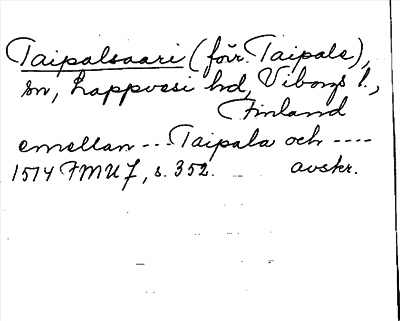 Taipalsaari (förr. Taipale),
sn, Lappvesi hd, Viborgs l.,
Finland
emellan --- Taipala och ----
1514 FMU 7, s. 352. avskr.